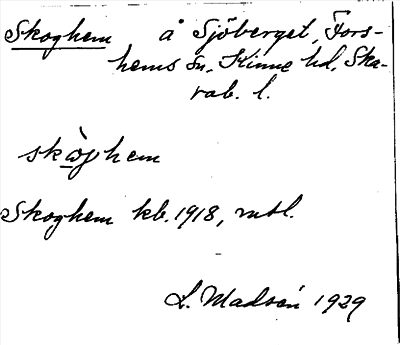 Skoghem å Sjöberget, Fors-
hems sn, Kinne hd, Ska-
rab. l.
skòghem
Skoghem kb. 1918, mtl.
L. Madsén 1929